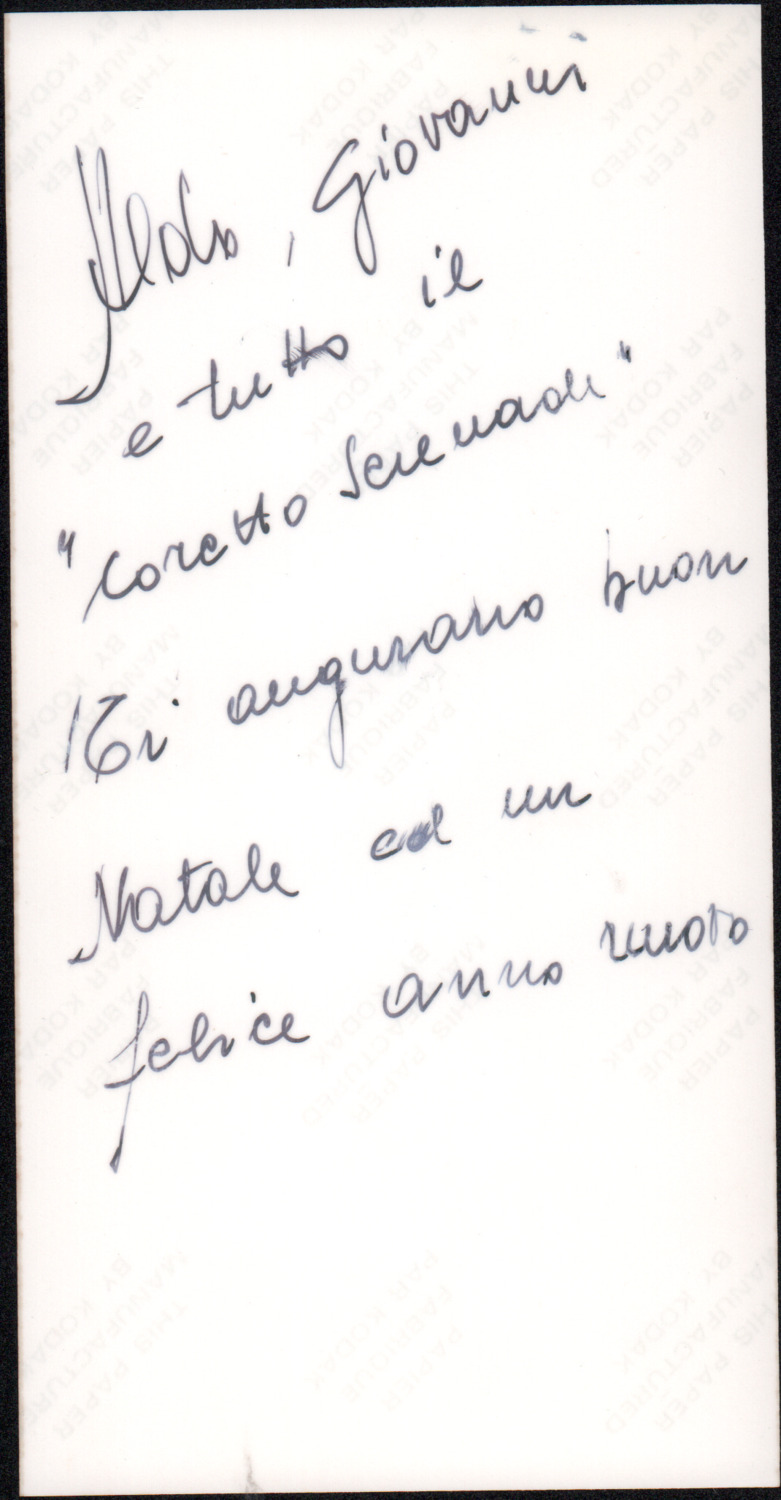 Aldo, Giovanni
e tutto il
"Coretto Serenade"
Ti augurano buon
Natale ed un
felice anno nuovo
THIS PAPER
MANUFACTURED
BY KODAK
PAPIER
FABRIQUE
PAR KODAK